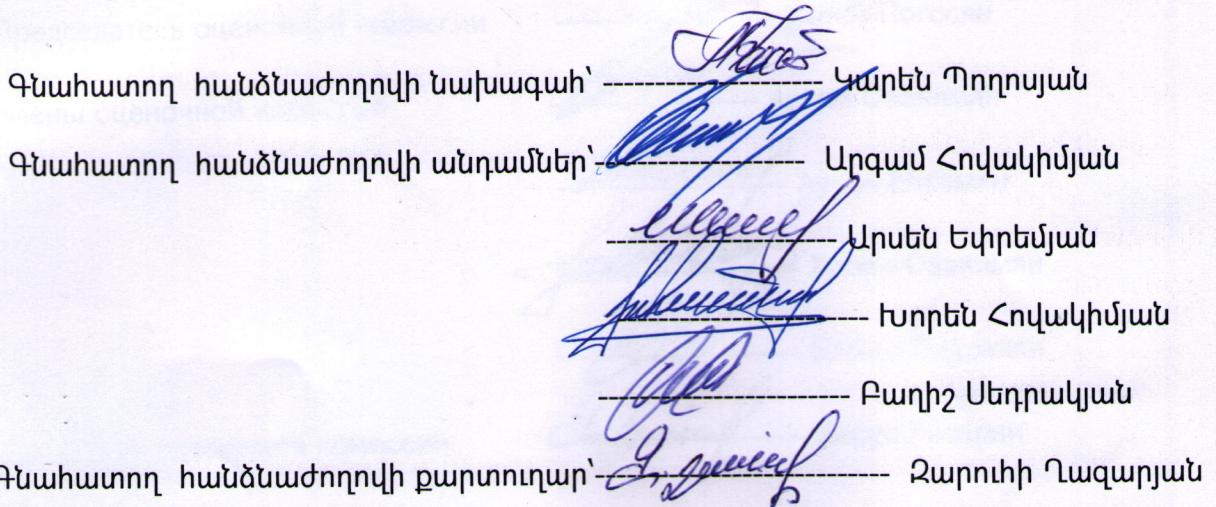 Գնահատող հանձնաժողովի նախագահ՝ ---------------------- Կարեն Պողոսյան
Գնահատող հանձնաժողովի անդամներ՝-------------------- Արգամ Հովակիմյան
---------------------- Արսեն Եփրեմյան
------------------------- Խորեն Հովակիմյան
------------------------ Բաղիշ Սեդրակյան
Գնահատող հանձնաժողովի քարտուղար՝---------------------------- Զարուհի Ղազարյան